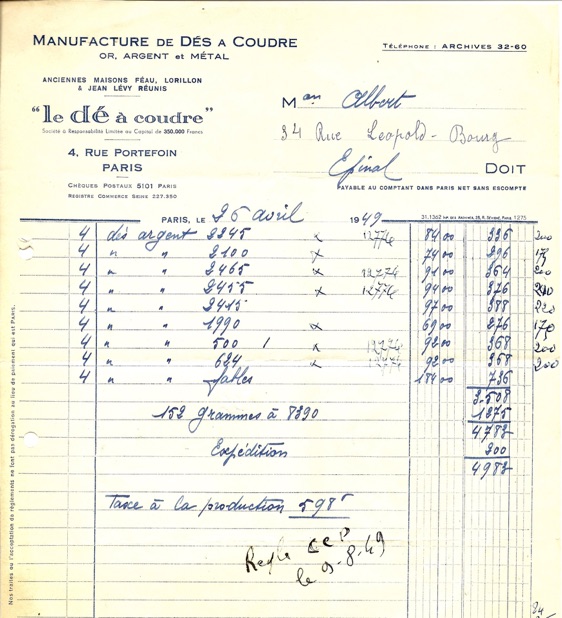 MANUFACTURE DE DÉS A COUDRE
OR, ARGENT et MÉTAL
TÉLÉPHONE : ARCHIVES 32-60
ANCIENNES MAISONS FÉAU, LORILLON
& JEAN LÉVY RÉUNIS
"le dé à coudre"
Société à Responsabilité Limitée au Capital de 350.000 Francs
4, RUE PORTEFOIN
PARIS
CHÈQUES POSTAUX 5101 PARIS
REGISTRE COMMERCE SEINE 227.350
Mon Albert
34 Rue Leopold-Bourg
Epinal DOIT
PAYABLE AU COMPTANT DANS PARIS NET SANS ESCOMPTE
PARIS, LE 26 avril 1949
4 dés argent 2245 x 12774 84 00 336 200
4 " " 2100 x 74 00 296 175
4 " " 2465 x 12774 91 00 364 200
4 " " 2455 x 12774 94 00 376
4 " " 2415 97 00 388 220
4 " " 1990 x 69 00 276 170
4 " " 500 x 12774 92 00 368 200
4 " " 624 x 12774 92 00 368 200
4 " " fables 184 00 736
3.508
152 grammes à 8390 1275
4783
Expédition 200
4983
Taxe à la production 598
Reglé CCP
le 9-8-49
Nos traites ou l'acceptation de règlements ne font pas dérogation au lieu de paiement qui est PARIS.